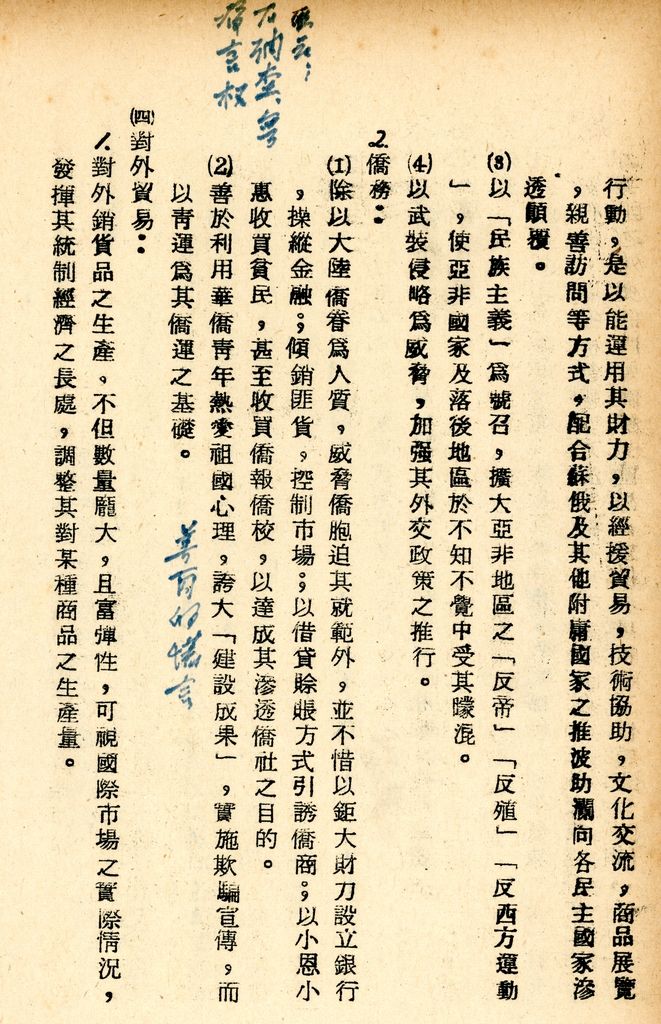 行動,是以能運用其財力,以經援貿易,技術協助,文化交流,商品展覽
,親善訪問等方式,配合蘇俄及其他附庸國家之推波助瀾向各民主國家滲
透顛覆。
(3)以「民族主義」爲號召,擴大亞非地區之「反帝」「反殖」「反西方運動
」,使亞非國家及落後地區於不知不覺中受其矇混。
(4)以武裝侵略爲威脅,加强其外交政策之推行。
2.僑務:
(1)除以大陸僑眷爲人質,威脅僑胞迫其就範外,並不惜以鉅大財力設立銀行
,操縱金融;傾銷匪貨,控制市場;以借貸賒賬方式引誘僑商;以小恩小
惠收買貧民,甚至收買僑報僑校,以達成其滲透僑社之目的。
(2)善於利用華僑靑年熱愛祖國心理,誇大「建設成果」,實施欺騙宣傳,而
以靑運爲其僑運之基礎。
(四)對外貿易:
1.對外銷貨品之生產,不但數量龐大,且富彈性,可視國際市場之實際情況,
發揮其統制經濟之長處,調整其對某種商品之生產量。